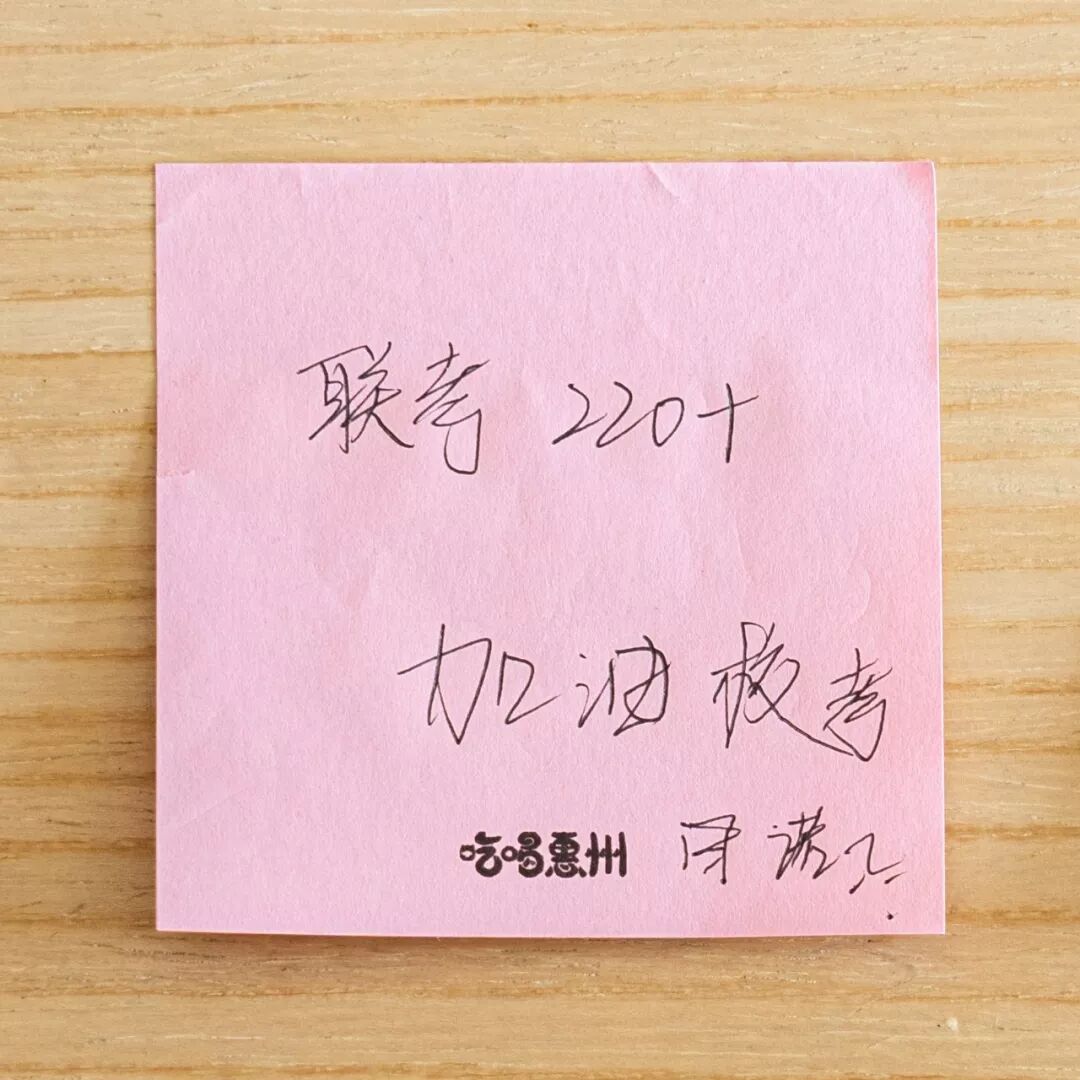 联考 220+
加油 校考
吃喝惠州